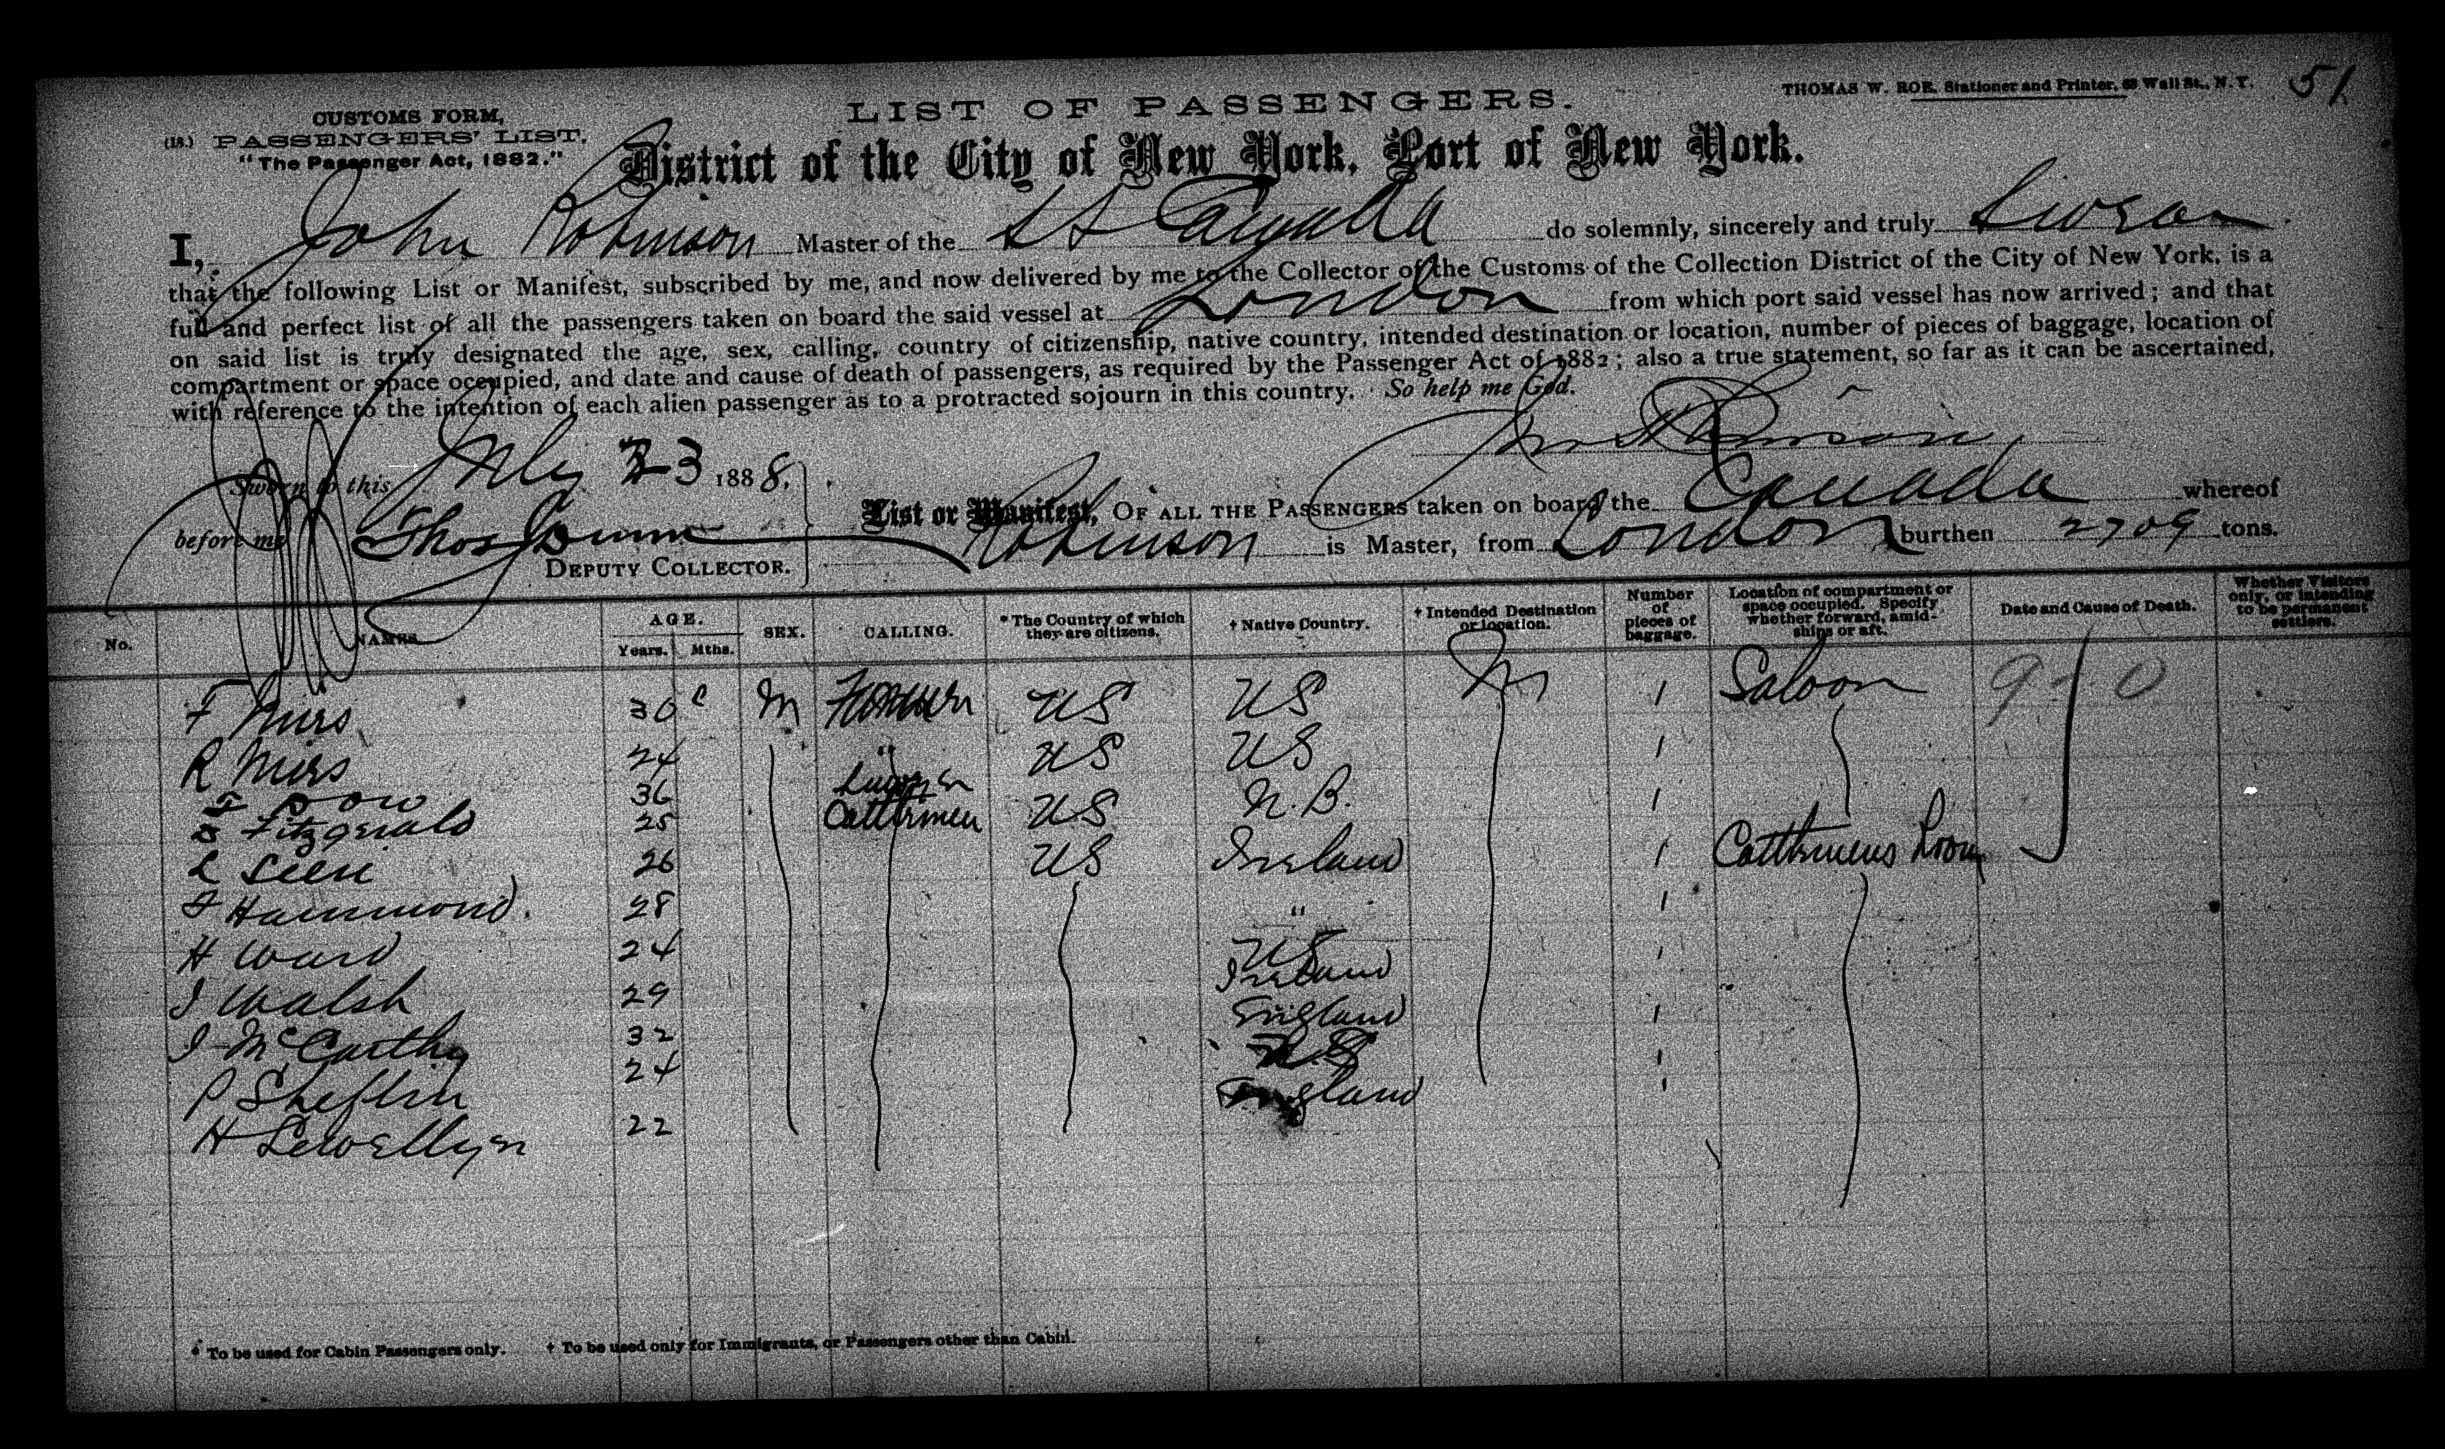 THOMAS W. ROE, Stationer and Printer, 68 Wall St., N. Y. 51
CUSTOMS FORM,
(18.) PASSENGERS' LIST.
"The Passenger Act, 1882."
LIST OF PASSENGERS.
District of the City of New York, Port of New York.
I, John Robinson Master of the SS Canada do solemnly, sincerely and truly Swear
that the following List or Manifest, subscribed by me, and now delivered by me to the Collector of the Customs of the Collection District of the City of New York, is a
full and perfect list of all the passengers taken on board the said vessel at London from which port said vessel has now arrived; and that
on said list is truly designated the age, sex, calling, country of citizenship, native country, intended destination or location, number of pieces of baggage, location of
compartment or space occupied, and date and cause of death of passengers, as required by the Passenger Act of 1882; also a true statement, so far as it can be ascertained,
with reference to the intention of each alien passenger as to a protracted sojourn in this country. So help me God.
Jno Robinson
Sworn to this July 23 1888.
before me Thos Dunn
DEPUTY COLLECTOR.
List or Manifest, OF ALL THE PASSENGERS taken on board the Canada whereof
Robinson is Master, from London burthen 2709 tons.
No. NAMES. AGE. Years. Mths. SEX. CALLING. *The Country of which they are citizens. † Native Country. † Intended Destination or location. Number of pieces of baggage. Location of compartment or space occupied. Specify whether forward, amidships or aft. Date and Cause of Death. Whether Visitors only, or intending to be permanent settlers.
F Miers 30 M US US 1 Saloon 9-0
R Miers 24 " US US 1
Dow 36 US N. B. 1
Fitzgerald 25 Cattlemen US Ireland 1 Cattlemens Room
L 26 " 1
Hammond. 28 US 1
H Ward 24 Ireland
J Walsh 29 England 1
J McCarthy 32 1
P Sheflin 24 England 1
H Lewellyn 22
* To be used for Cabin Passengers only. † To be used only for Immigrants, or Passengers other than Cabin.